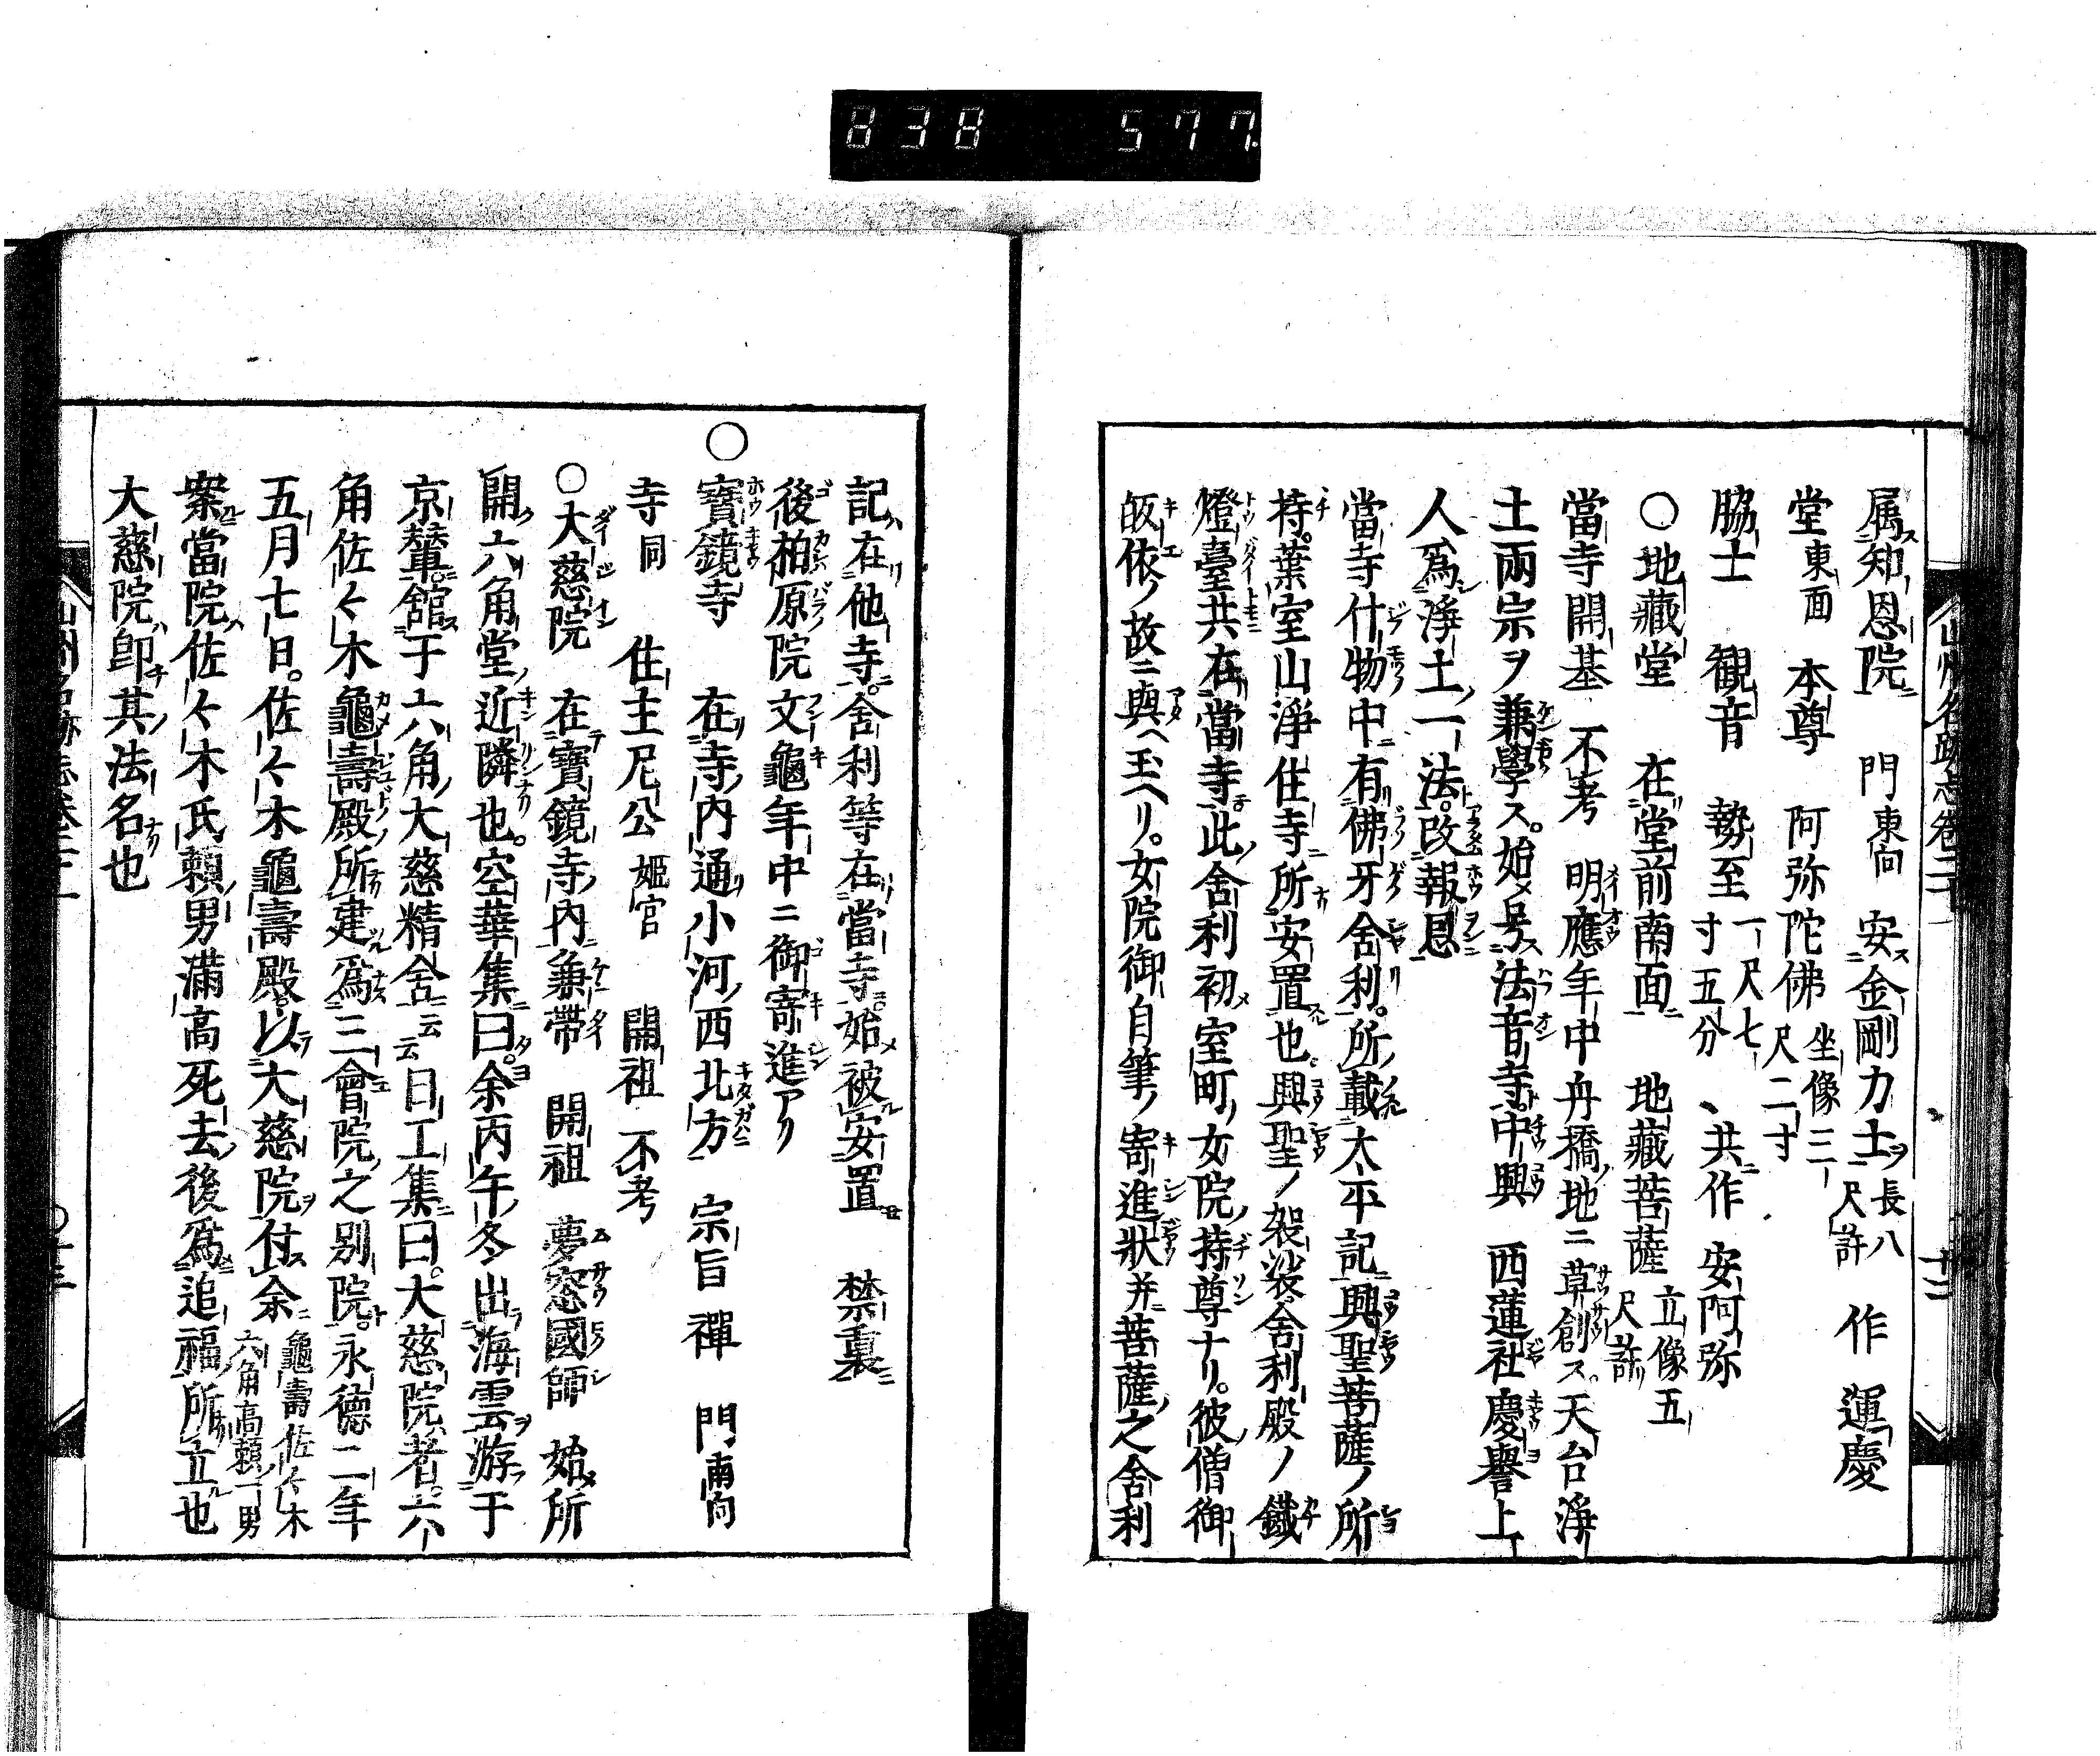 838 577
山州名跡志巻二十 十二
属知恩院 門東向 安金剛力士長八尺許 作 運慶
堂東面 本尊 阿弥陀佛坐像三尺二寸
脇士 観音 勢至一尺七寸五分 共作 安阿弥
○地藏堂 在堂前南面 地藏菩薩立像五尺許
當寺開基 不考 明應年中舟橋地ニ草創ス。天台淨
土兩宗ヲ兼學ス。始号法音寺。中興 西蓮社慶譽上
人爲淨土一法。改報恩
當寺什物中有佛牙舍利。所載太平記興聖菩薩ノ所
持。葉室山淨住寺所安置也。興聖ノ袈裟舍利殿ノ鐵
燈臺共在當寺。此舍利初室町女院持尊ナリ。彼僧御
皈依ノ故ニ與ヘ玉ヘリ。女院御自筆ノ寄進狀并菩薩之舍利
記在他寺。舍利等在當寺始被安置 禁裏
後柏原院文龜年中ニ御寄進アリ
○寶鏡寺 在寺内通小河西北方 宗旨禪 門南向
寺同 住主尼公姫宮 開祖不考
○大慈院 在寶鏡寺内兼帶 開祖 夢窓國師 始所
開六角堂近隣也。空華集曰。余丙午冬出海雲游于
京輦舘于六角大慈精舍云云日工集曰。大慈院者。六
角佐々木龜壽殿所建爲三會院之別院。永德二年
五月七日。佐々木龜壽殿以大慈院付余龜壽佐々木六角高賴一男
案當院佐々木氏賴男滿高死去後爲追福所立也
大慈院卽其法名也